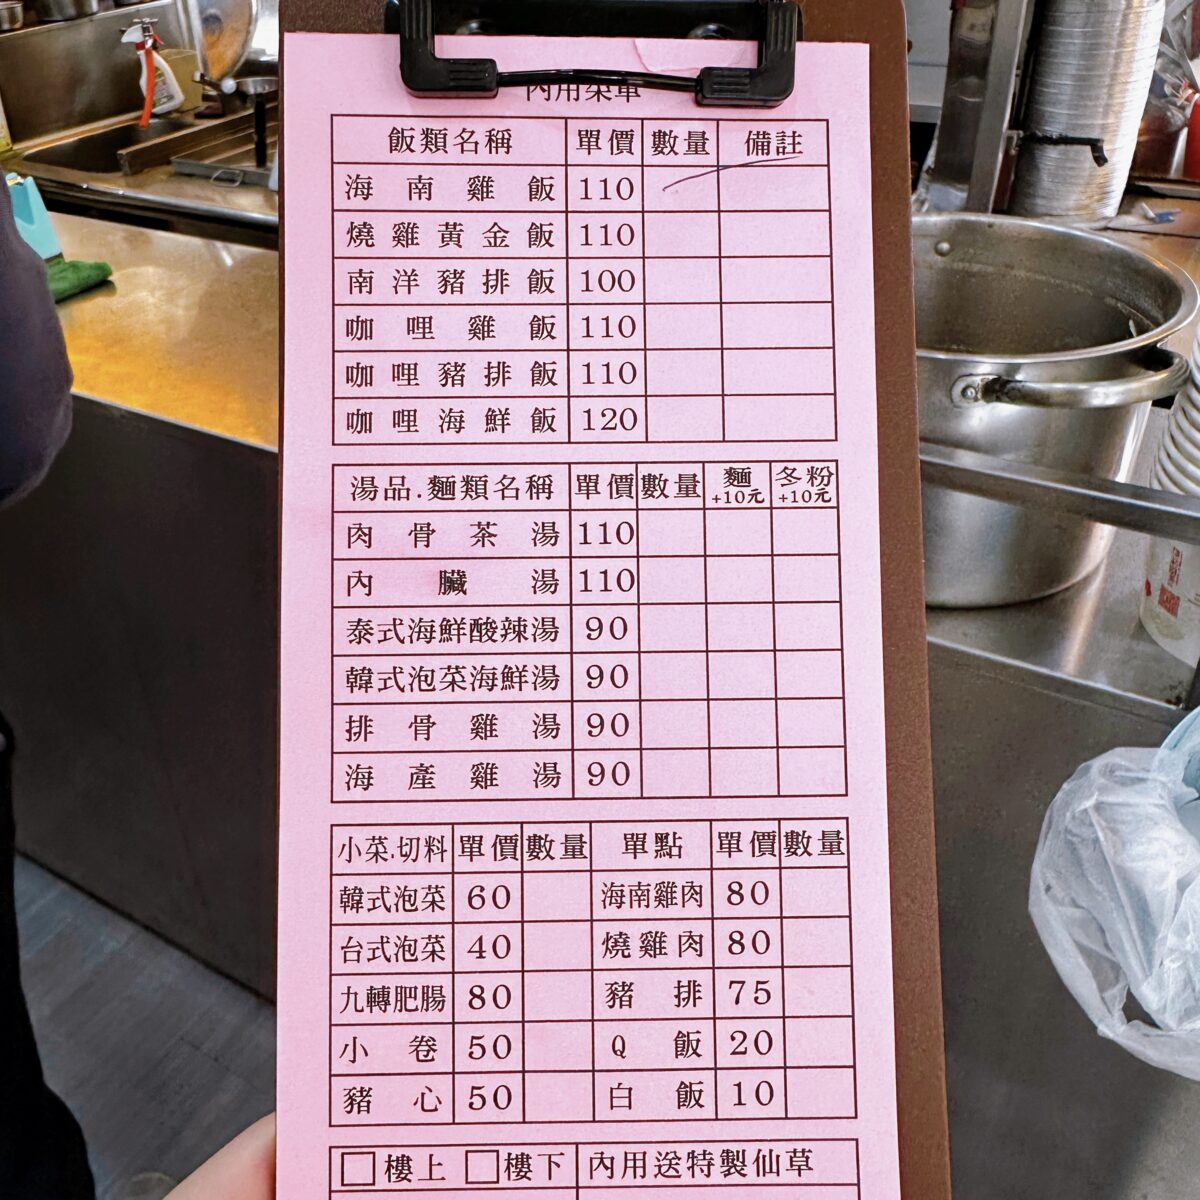 內用菜單
飯類名稱 單價 數量 備註
海南雞飯 110
燒雞黃金飯 110
南洋豬排飯 100
咖哩雞飯 110
咖哩豬排飯 110
咖哩海鮮飯 120
湯品.麵類名稱 單價 數量 麵+10元 冬粉+10元
肉骨茶湯 110
內臟湯 110
泰式海鮮酸辣湯 90
韓式泡菜海鮮湯 90
排骨雞湯 90
海產雞湯 90
小菜.切料 單價 數量 單點 單價 數量
韓式泡菜 60 海南雞肉 80
台式泡菜 40 燒雞肉 80
九轉肥腸 80 豬排 75
小卷 50 Q飯 20
豬心 50 白飯 10
□樓上 □樓下 內用送特製仙草